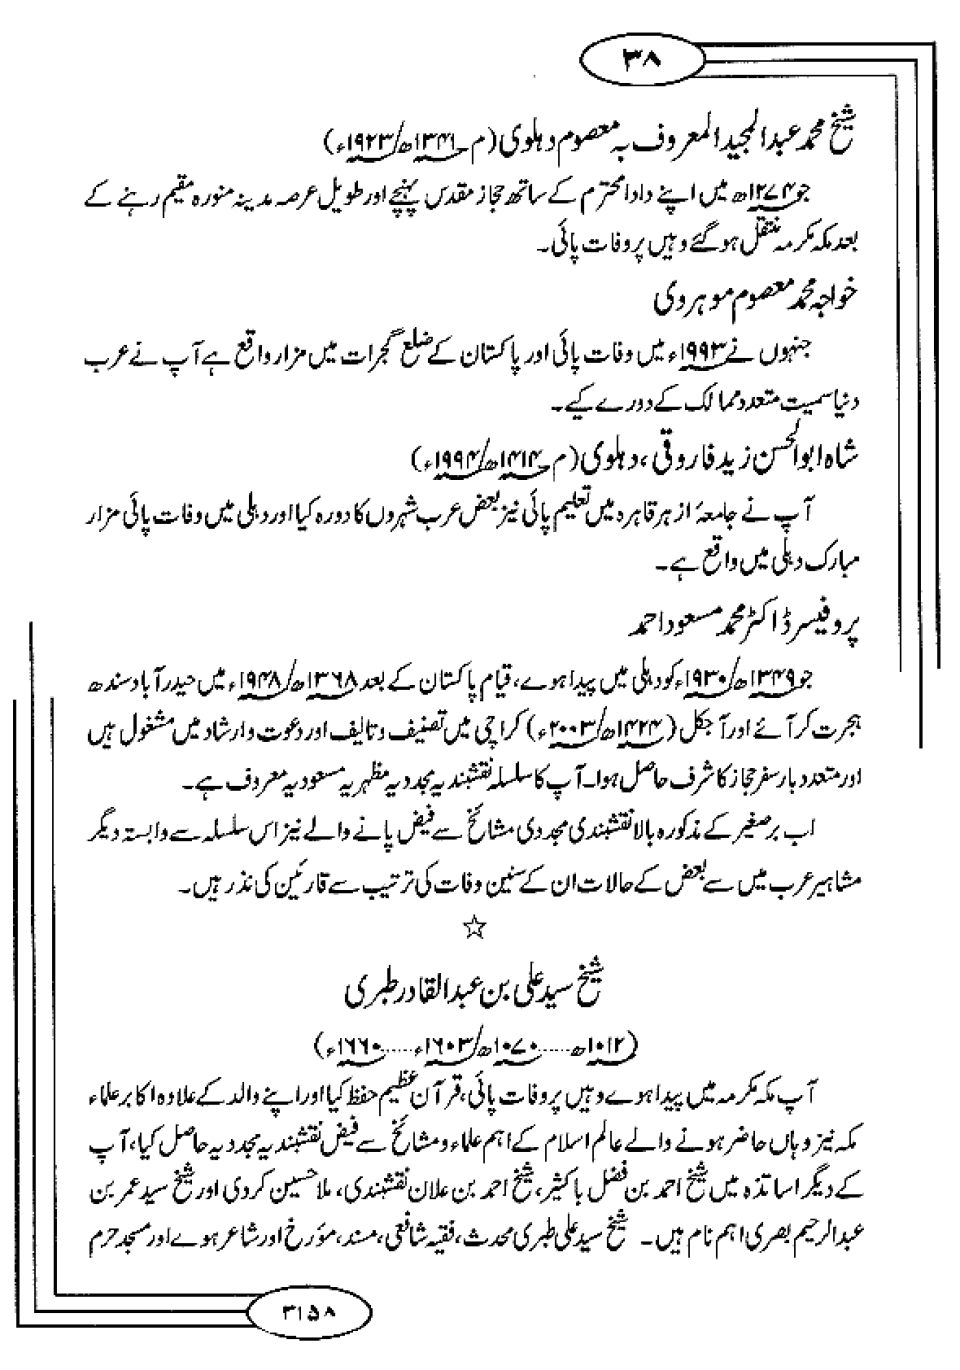 ۳۸
شیخ محمد عبدالمجید المعروف بہ معصوم دہلوی (م ۱۳۴۱ھ/۱۹۲۳ء)
جو ۱۲۷۴ھ میں اپنے دادا محترم کے ساتھ حجاز مقدس پہنچے اور طویل عرصہ مدینہ منورہ مقیم رہنے کے
بعد مکہ مکرمہ منتقل ہو گئے وہیں پر وفات پائی۔
خواجہ محمد معصوم موہروی
جنہوں نے ۱۹۹۳ء میں وفات پائی اور پاکستان کے ضلع گجرات میں مزار واقع ہے آپ نے عرب
دنیا سمیت متعدد ممالک کے دورے کیے۔
شاہ ابوالحسن زید فاروقی، دہلوی (م ۱۴۱۴ھ/۱۹۹۴ء)
آپ نے جامعۂ ازہر قاہرہ میں تعلیم پائی نیز بعض عرب شہروں کا دورہ کیا اور دہلی میں وفات پائی مزار
مبارک دہلی میں واقع ہے۔
پروفیسر ڈاکٹر محمد مسعود احمد
جو ۱۳۴۹ھ/۱۹۳۰ء کو دہلی میں پیدا ہوے، قیام پاکستان کے بعد ۱۳۶۸ھ/۱۹۴۸ء میں حیدرآباد سندھ
ہجرت کر آئے اور آجکل (۱۴۲۴ھ/۲۰۰۳ء) کراچی میں تصنیف و تالیف اور دعوت و ارشاد میں مشغول ہیں
اور متعدد بار سفر حجاز کا شرف حاصل ہوا۔ آپ کا سلسلہ نقشبندیہ مجددیہ مظہریہ مسعودیہ معروف ہے۔
اب برصغیر کے مذکورہ بالا نقشبندی مجددی مشائخ سے فیض پانے والے نیز اس سلسلہ سے وابستہ دیگر
مشاہیر عرب میں سے بعض کے حالات ان کے سنین وفات کی ترتیب سے قارئین کی نذر ہیں۔
☆
شیخ سید علی بن عبدالقادر طبری
(۱۰۱۲ھ.....۱۰۷۰ھ/۱۶۰۳ء.....۱۶۶۰ء)
آپ مکہ مکرمہ میں پیدا ہوے وہیں پر وفات پائی، قرآن عظیم حفظ کیا اور اپنے والد کے علاوہ اکابر علماء
مکہ نیز وہاں حاضر ہونے والے عالم اسلام کے اہم علماء و مشائخ سے فیض نقشبندیہ مجددیہ حاصل کیا، آپ
کے دیگر اساتذہ میں شیخ احمد بن فضل باکثیر، شیخ احمد بن علان نقشبندی، ملا حسین کردی اور شیخ سید عمر بن
عبدالرحیم بصری اہم نام ہیں۔ شیخ سید علی طبری محدث، فقیہ شافعی، مسند، مؤرخ اور شاعر ہوے اور مسجد حرم
۳۱۵۸